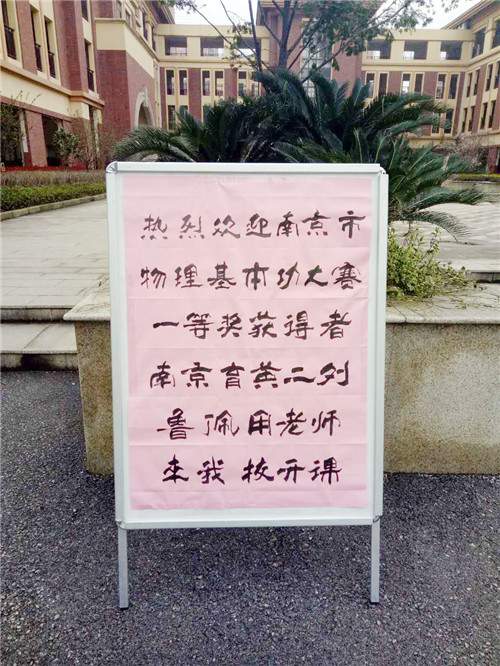 热烈欢迎南京市
物理基本功大赛
一等奖获得者
南京育英二外
鲁佩用老师
来我校开课